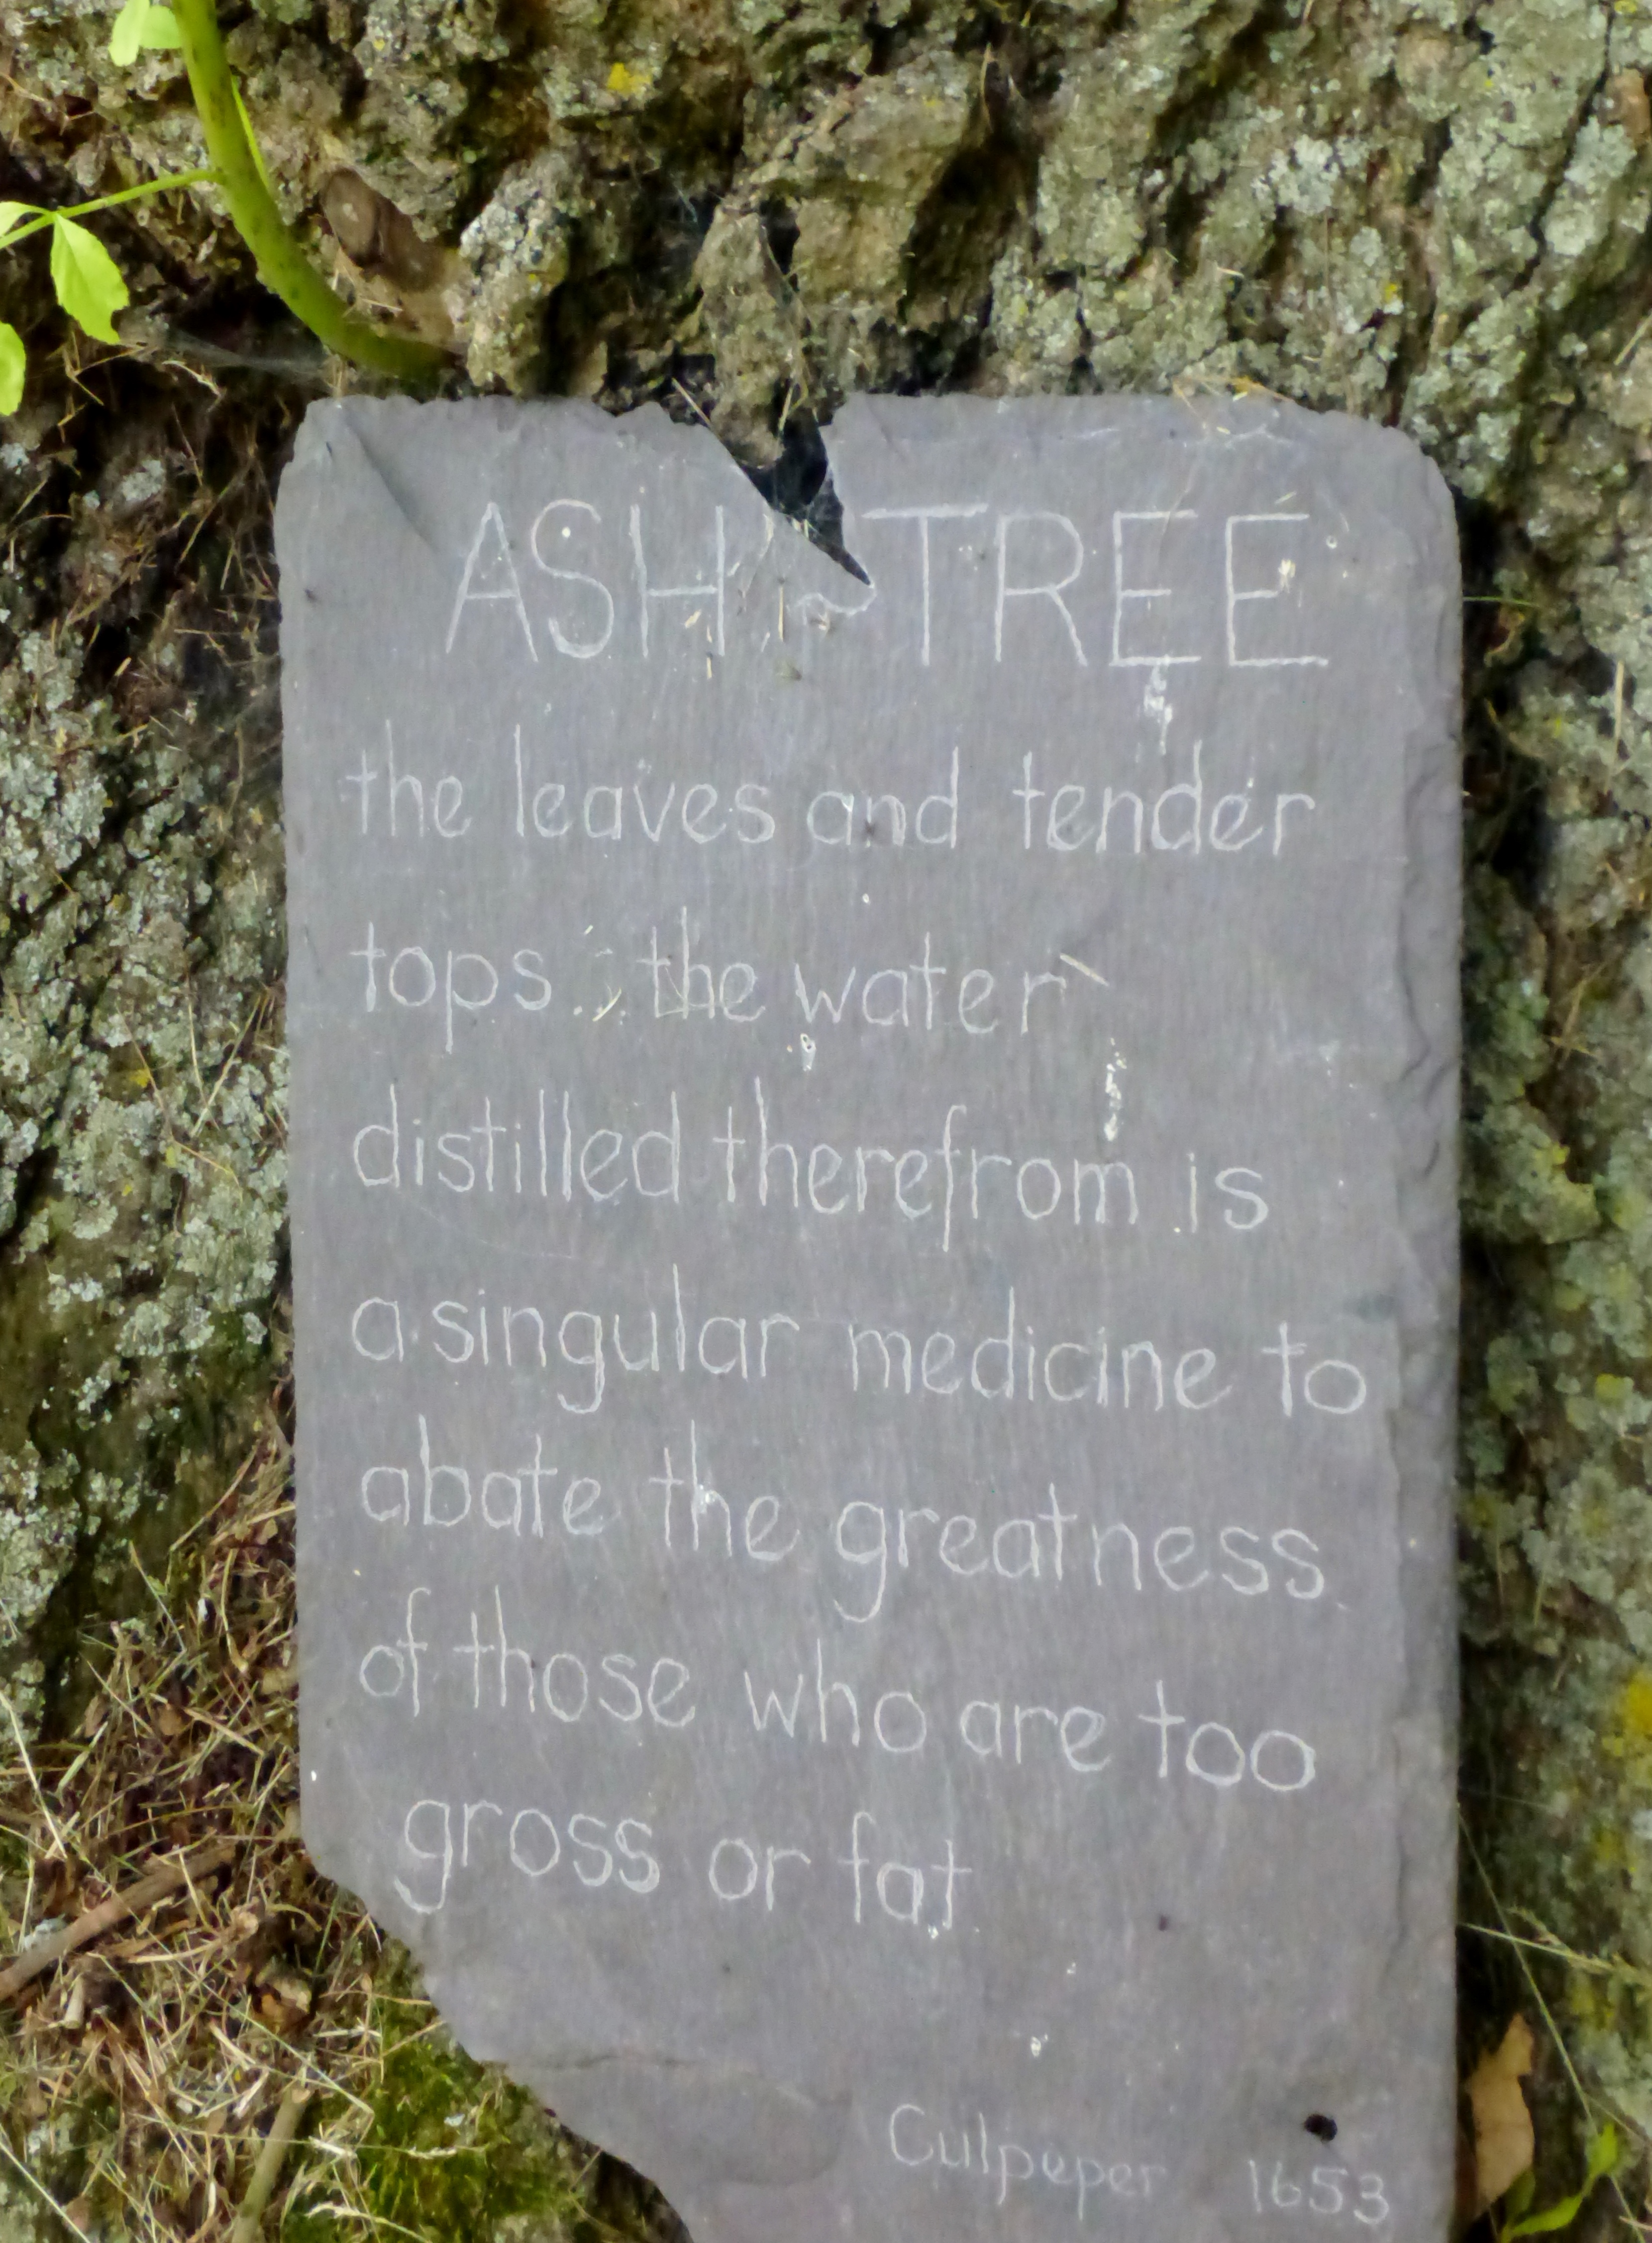 ASH ~ TREE
the leaves and tender
tops... the water
distilled therefrom is
a singular medicine to
abate the greatness
of those who are too
gross or fat
Culpeper 1653